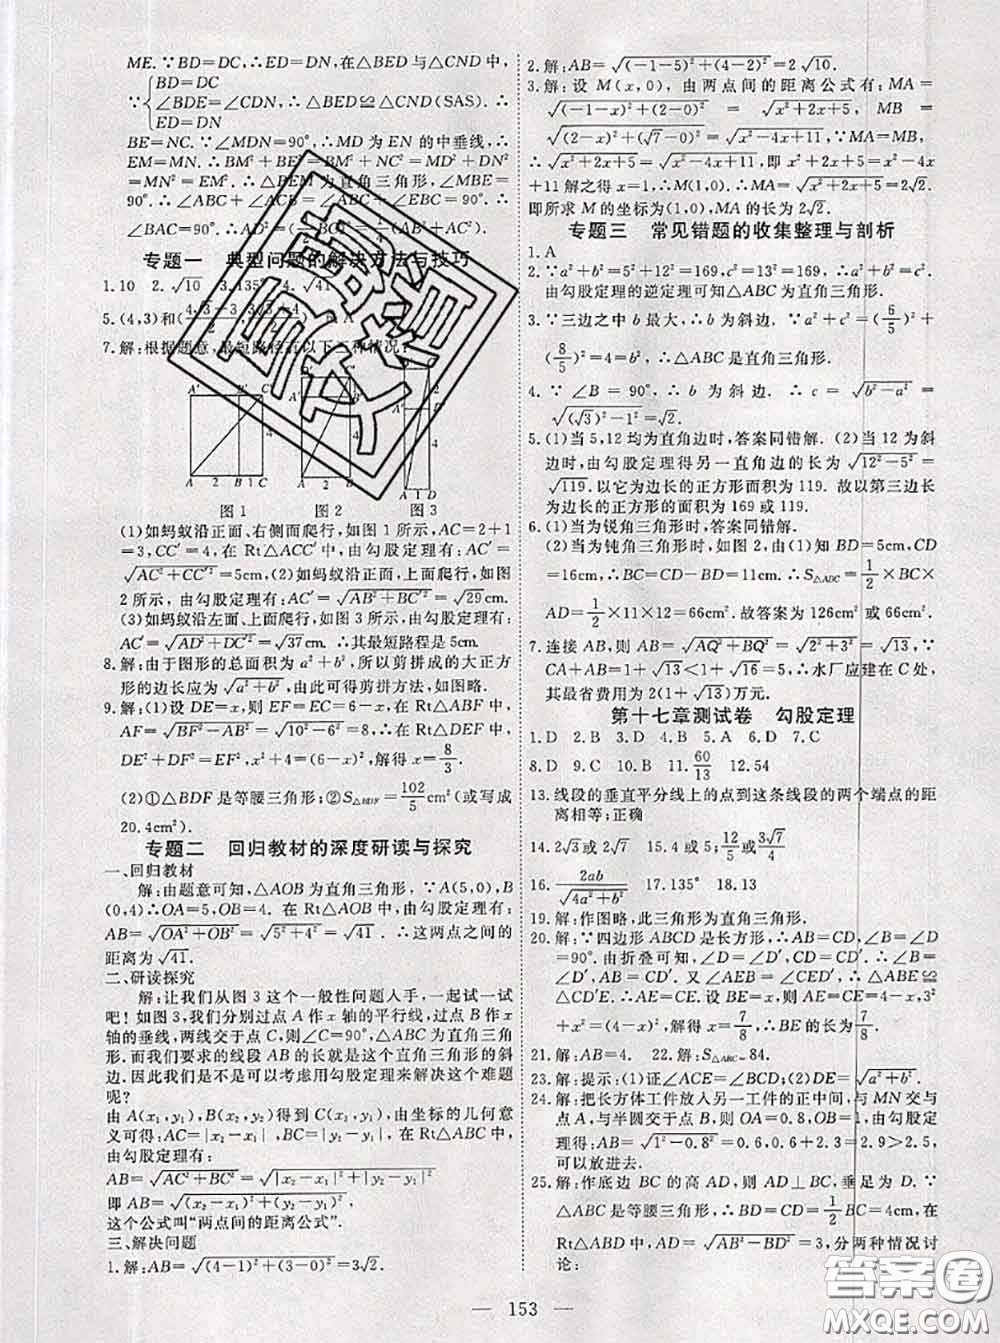 ME. ∵BD=DC,∴ED=DN,在△BED与△CND中,
∵{BD=DC ∠BDE=∠CDN, ED=DN ∴△BED≌△CND(SAS). ∴
BE=NC. ∵∠MDN=90°,∴MD为EN的中垂线,∴
EM=MN. ∴BM²+BE²=BM²+NC²=MD²+
DN²=MN²=EM². ∴△BEM为直角三角形,∠MBE=
90°. ∴∠ABC+∠ACB=∠ABC+∠EBC=90°. ∴
∠BAC=90°. ∴AD²=
专题一 典型问题的解决方法与技巧
1.10 2.√10 3.135°
5.(4,3)和
7.解:根据题意,最短路径有以下三种情况:
A' B' C'
A 2 B 1 C
图1 图2 图3
(1)如蚂蚁沿正面、右侧面爬行,如图1所示,AC=2+1
=3,CC'=4,在Rt△ACC'中,由勾股定理有:AC'=
√(AC²+CC'²)=5cm,(2)如蚂蚁沿正面、上面爬行,如图
2所示,由勾股定理有:AC'=√(AB²+BC'²)=√29cm.
(3)如蚂蚁沿左面、上面爬行,如图3所示,由勾股定理有:
AC'=√(AD²+DC'²)=√37cm. ∴其最短路程是5cm.
8.解:由于图形的总面积为a²+b²,所以剪拼成的大正方
形的边长应为√(a²+b²),由此可得剪拼方法,如图略.
9.解:(1)设DE=x,则EF=EC=6-x,在Rt△ABF中,
AF=√(BF²-AB²)=√(10²-6²)=8,在Rt△DEF中,
DE²+DF²=EF²,x²+4²=(6-x)²,解得:x=8/3.
(2)①△BDF是等腰三角形;②S△BDF=102/5cm²(或写成
20.4cm²).
专题二 回归教材的深度研读与探究
一、回归教材
解:由题意可知,△AOB为直角三角形,∵A(5,0),B
(0,4)∴OA=5,OB=4. 在Rt△AOB中,由勾股定理有:
AB=√(OA²+OB²)=√(5²+4²)=√41. ∴这两点之间的
距离为√41.
二、研读探究
解:让我们从图3这个一般性问题入手,一起试一试
吧!如图3,我们分别过点A作x轴的平行线,过点B作x
轴的垂线,两线交于点C,则∠C=90°,△ABC为直角三角
形. 而我们要求的线段AB的长就是这个直角三角形的斜
边. 因此我们是不是可以考虑用勾股定理来解决这个难题
呢?
由A(x₁,y₁),B(x₂,y₂)得到C(x₂,y₁),由坐标的几何意
义可得:AC=|x₂-x₁|,BC=|y₂-y₁|,在Rt△ABC中,
由勾股定理有:
AB=√(AC²+BC²)=√(|x₂-x₁|²+|y₂-y₁|²)
即AB=√((x₂-x₁)²+(y₂-y₁)²)
这个公式叫“两点间的距离公式”.
三、解决问题
1.解:AB=√((4-1)²+(3-0)²)=3√2.
2.解:AB=√((-1-5)²+(4-2)²)=2√10.
3.解:设M(x,0),由两点间的距离公式有:MA=
√((-1-x)²+(2-0)²)=√(x²+2x+5),MB=
√((2-x)²+(√7-0)²)=√(x²-4x+11),∵MA=MB,
∴√(x²+2x+5)=√(x²-4x+11),即x²+2x+5=x²-4x
+11解之得x=1,∴M(1,0). ∴MA=√(x²+2x+5)=2√2.
即所求M的坐标为(1,0),MA的长为2√2.
专题三 常见错题的收集整理与剖析
1.A
2.∵a²+b²=5²+12²=169,c²=13²=169,∴a²+b²=c²,
由勾股定理的逆定理可知△ABC为直角三角形.
3.∵三边之中b最大,∴b为斜边. ∵a²+c²=(6/5)²+
(8/5)²=2²=b²,∴△ABC是直角三角形.
4.∵∠B=90°,∴b为斜边. ∴c=√(b²-a²)=
√((√3)²-1²)=√2.
5.(1)当5,12均为直角边时,答案同错解. (2)当12为斜
边时,由勾股定理得另一直角边的长为√(12²-5²)=
√119. 以它为边长的正方形面积为119. 故以第三边长
为边长的正方形的面积为169或119.
6.(1)当为锐角三角形时,答案同错解.
(2)当为钝角三角形时,如图2,由(1)知BD=5cm,CD
=16cm,∴BC=CD-BD=11cm. ∴S△ABC=1/2×BC×
AD=1/2×11×12=66cm². 故答案为126cm²或66cm².
7.连接AB,则AB=√(AQ²+BQ²)=√(2²+3²)=√13,∵
CA+AB=1+√13<1+√16=5,∴水厂应建在C处,
其最省费用为2(1+√13)万元.
第十七章测试卷 勾股定理
1.D 2.B 3.D 4.A 5.A 6.D 7.C
8.D 9.C 10.B 11.60/13 12.54
13.线段的垂直平分线上的点到这条线段的两个端点的距
离相等;正确
14.2√3或2√7 15.4或5;12/5或3√7/4
16.2ab/√(4a²+b²) 17.135° 18.13
19.解:作图略,此三角形为直角三角形.
20.解:∵四边形ABCD是长方形,∴AB=CD,∠B=∠D
=90°. 由折叠可知,∠D=∠D',CD=CD',∴∠B=
∠D',AB=CD. 又∠AEB=∠CED',∴△ABE≌
△CD'E. ∴CE=AE. 设BE=x,则AE=CE=4-x,3²
+x²=(4-x)²,解得x=7/8,∴BE的长为7/8
21.解:AB=4. 22.解:S△ABC=84.
23.解:提示:(1)证∠ACE=∠BCD;(2)DE=√(a²+b²).
24.解:把长方体工件放入另一工件的正中,与MN交与
点A,与半圆交于点B,则OA=0.8,OB=1,由勾股定
理得:AB=√(1²-0.8²)=0.6,0.6+2.3=2.9>2.5,
可以放进去.
25.解:作底边BC的高AD,则AD⊥BC,垂足为D. ∵
△ABC是等腰三角形,∴BD=CD=1/2BC=4cm,在
Rt△ABD中,AD=√(AB²-BD²)=3,分两种情况讨
论:
153
答案圈
MXQE.COM